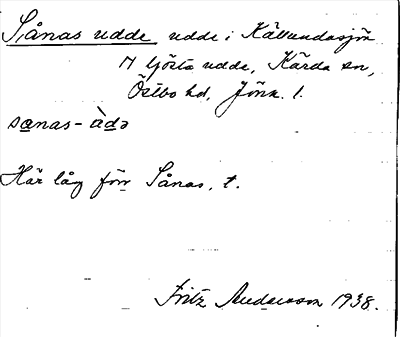 Sånas udde, udde i Källundasjön
M Ljösta udde, Kärda sn,
Östbo hd, Jönk. l.
sanas-ùdə
Här låg förr Sånas, t.
Fritz Andersson 1938.